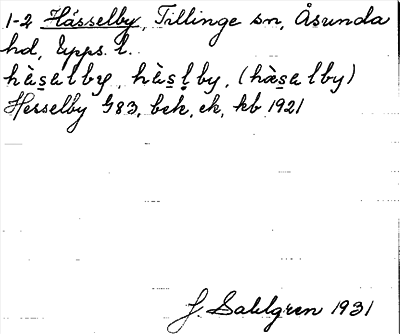 1-2 Hässelby, Tillinge sn, Åsunda
hd, Upps. l.
hàs̠alby, hàs̠l̥by, (hæ̀s̠alby)
Hesselby G83, bek, ek, kb 1921
J. Sahlgren 1931